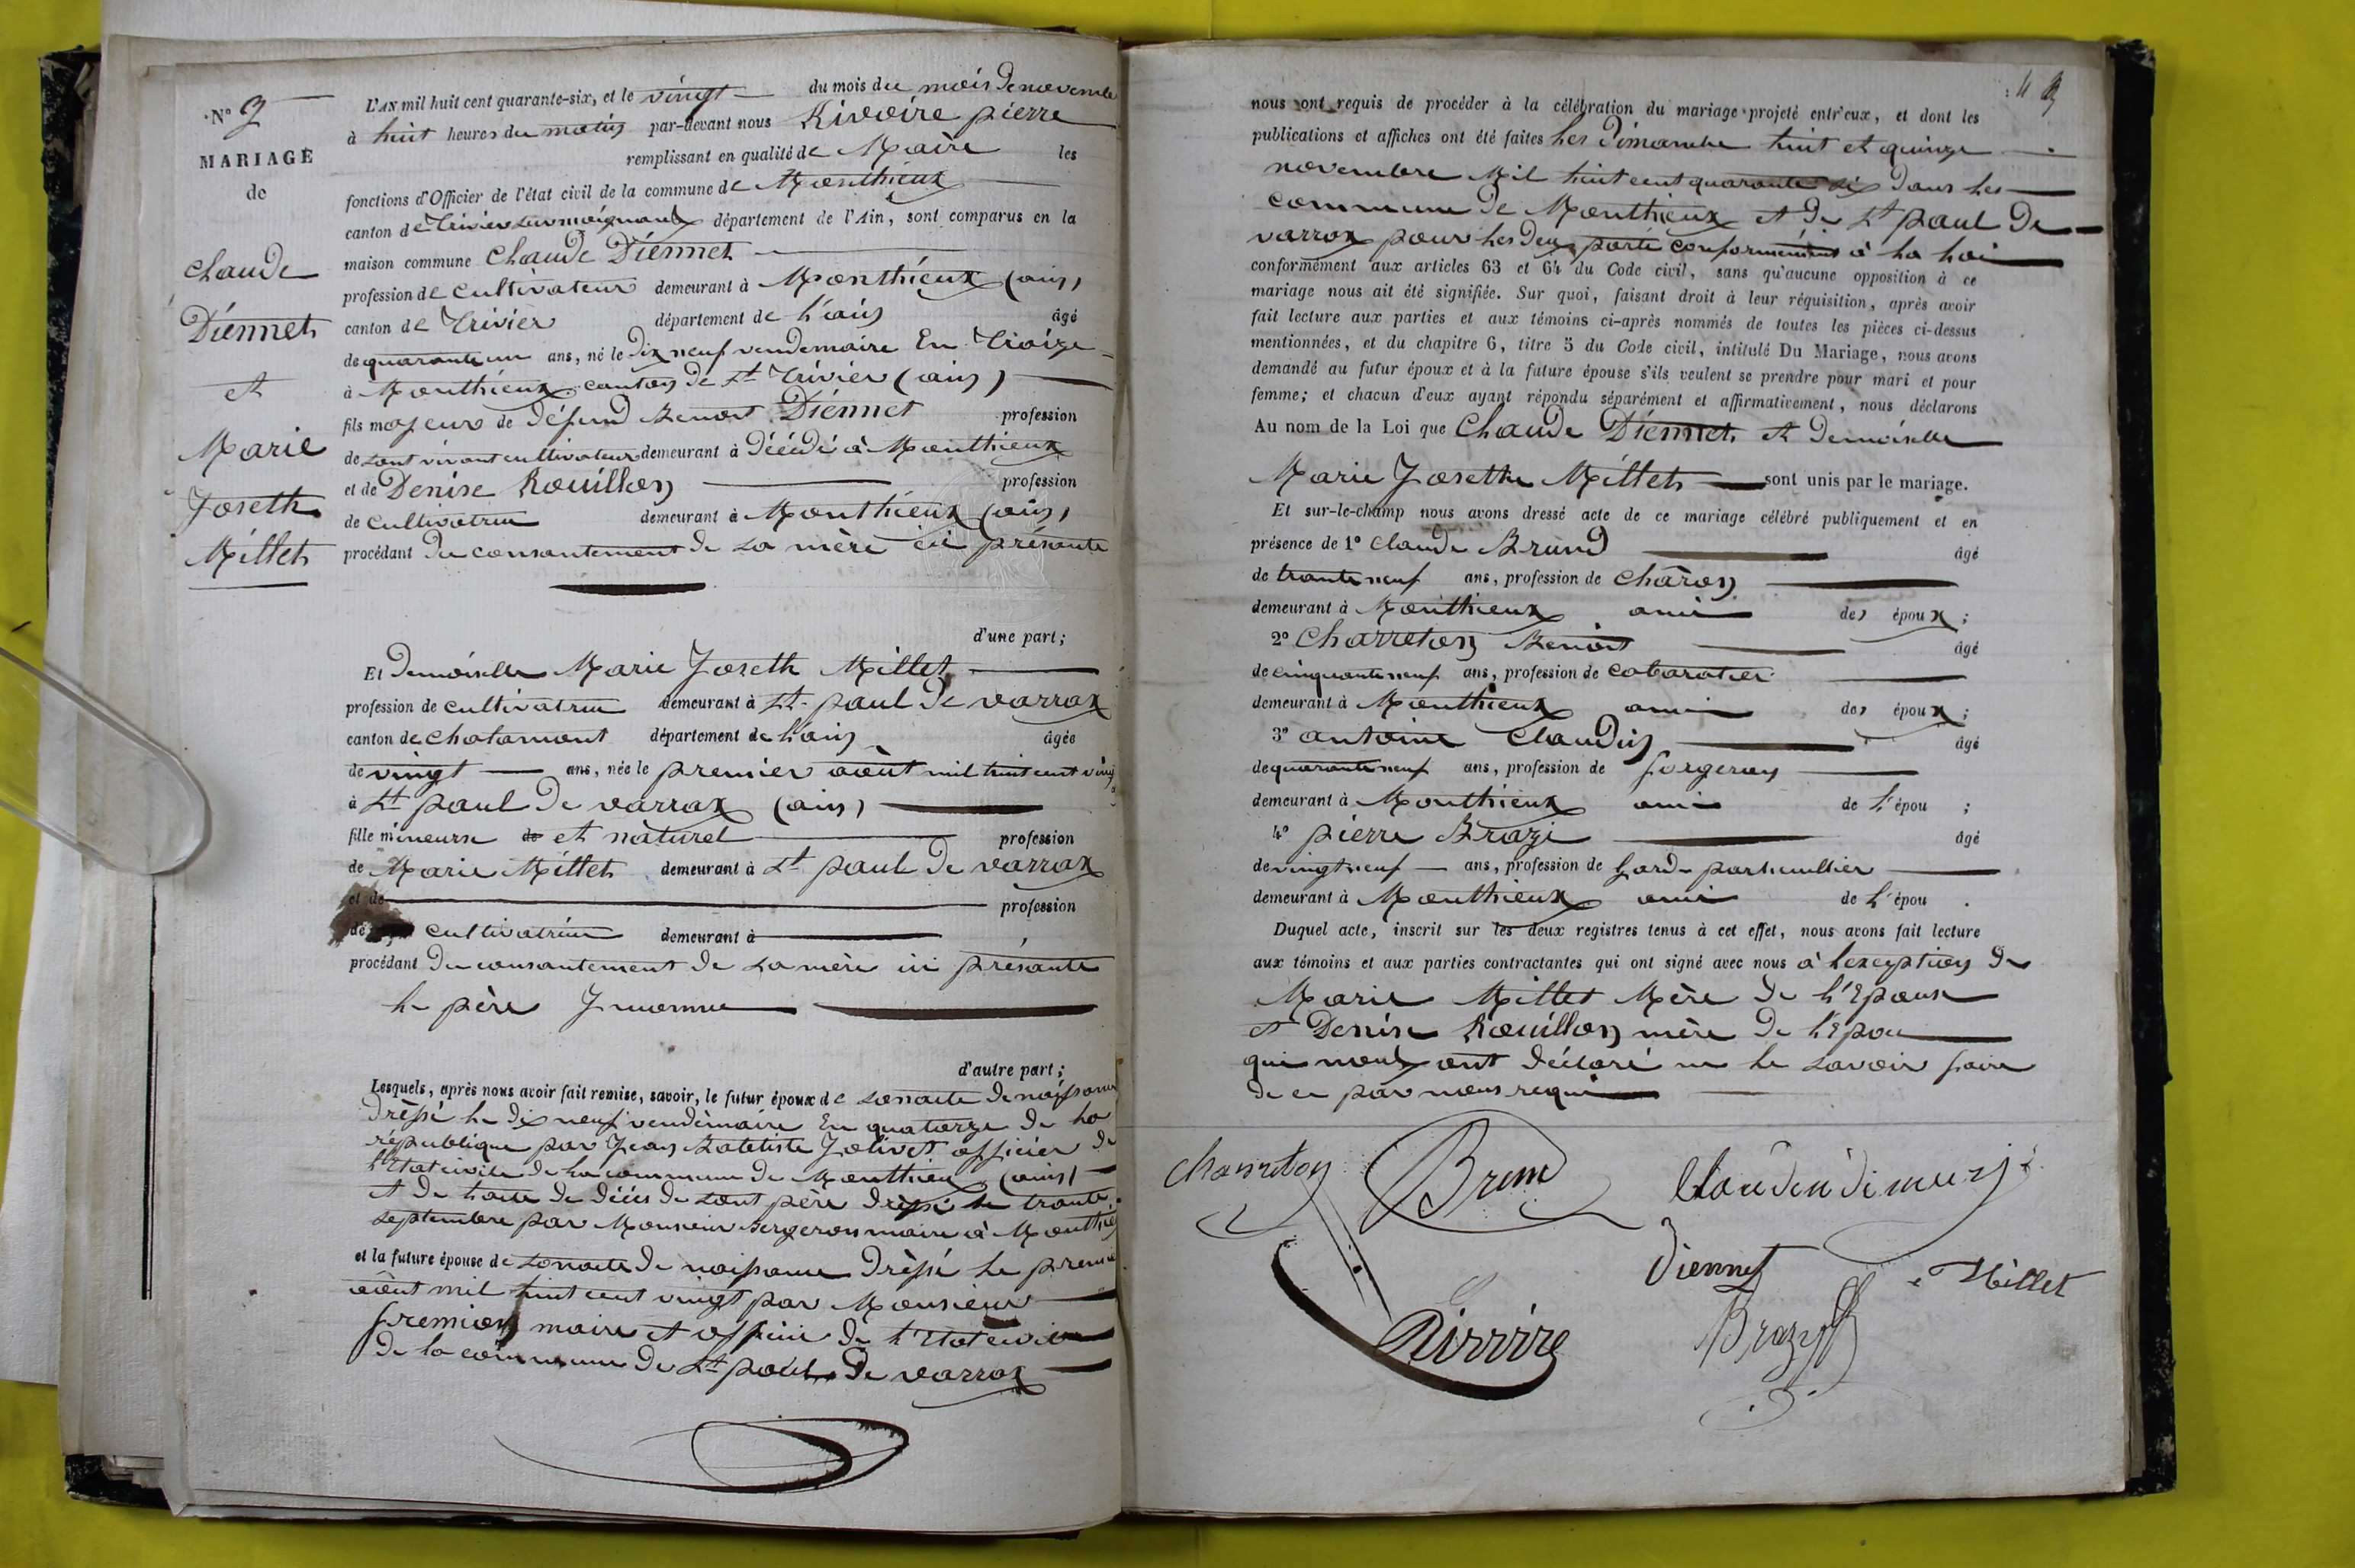 N° 2
MARIAGE
de
Claude
Diennet
et
Marie
Joseth
Millet
L'AN mil huit cent quarante-six, et le vingt du mois du mois de novembre
à huit heures du matin par-devant nous Rivoire pierre
remplissant en qualité de Maire les
fonctions d'Officier de l'état civil de la commune de Monthieux
canton de trivier sur moignans département de l'Ain, sont comparus en la
maison commune Claude Diennet
profession de cultivateur demeurant à Monthieux (ain)
canton de Trivier département de l'ain âgé
de quarante un ans, né le dix neuf vendemaire En Treize
à Monthieux canton de St Trivier (ain)
fils majeur de défund Benoit Diennet profession
de sont vivant cultivateur demeurant à décédé à Monthieux
et de Denise Rouillon profession
de cultivatrice demeurant à Monthieux (ain)
procédant du consantement de sa mère ici présante
d'une part;
Et demoiselle Marie Joseth Millet
profession de cultivatrice demeurant à St paul de varrax
canton de chalamont département de l'ain âgée
de vingt ans, née le premier août mil huit cent vingt
à St paul de varrax (ain)
fille mineurse de et naturel profession
de Marie Millet demeurant à St paul de varrax
et de profession
de cultivatrice demeurant à
procédant du consantement de sa mère ici présante
le père Inconnu
d'autre part;
Lesquels, après nous avoir fait remise, savoir, le futur époux de son acte de naissance
dressé le dix neuf vendémaire En quatorze de la
république par Jean Batetiste Jolivet officier de
l'Etat civile de la commune de Monthieux (ain)
et de l'acte de décés de sont père dressé le trante
septembre par Monsieur Bergeron maire à Monthieux
et la future épouse de son acte de naissance dressé le premier
août mil huit cent vingt par Monsieur
fremion maire et officié de l'Etat civil
de la commune de St paul de varrax
nous ont requis de procéder à la célébration du mariage projeté entr'eux, et dont les
publications et affiches ont été faites les dimanche huit et quinze
novembre Mil huit cent quarante six dans les
commune de Monthieux et de St paul de
varrax pour les deux parti conformément à la loi
conformément aux articles 63 et 64 du Code civil, sans qu'aucune opposition à ce
mariage nous ait été signifiée. Sur quoi, faisant droit à leur réquisition, après avoir
fait lecture aux parties et aux témoins ci-après nommés de toutes les pièces ci-dessus
mentionnées, et du chapitre 6, titre 5 du Code civil, intitulé Du Mariage, nous avons
demandé au futur époux et à la future épouse s'ils veulent se prendre pour mari et pour
femme; et chacun d'eux ayant répondu séparément et affirmativement, nous déclarons
Au nom de la Loi que Claude Diennet et demoiselle
Marie Josethe Millet sont unis par le mariage.
Et sur-le-champ nous avons dressé acte de ce mariage célébré publiquement et en
présence de 1° Claude Brund âgé
de trante neuf ans, profession de charon
demeurant à Monthieux ami des époux;
2° Charreton Benoit âgé
de cinquante neuf ans, profession de cabaratier
demeurant à Monthieux ami des époux;
3° antoine Claudin âgé
de quarante neuf ans, profession de forgeron
demeurant à Monthieux ami de l'épou ;
4° pierre Brazi âgé
de vingt neuf ans, profession de gard particullier
demeurant à Monthieux ami de l'épou .
Duquel acte, inscrit sur les deux registres tenus à cet effet, nous avons fait lecture
aux témoins et aux parties contractantes qui ont signé avec nous à l'exception de
Marie Millet Mère de l'Epouse
et Denise Rouillon mère de l'Epou
qui nous ont déclaré ne le savoir faire
de ce par nous requi
Charreton Brund
Diennet Millet
Rivoire Brazy